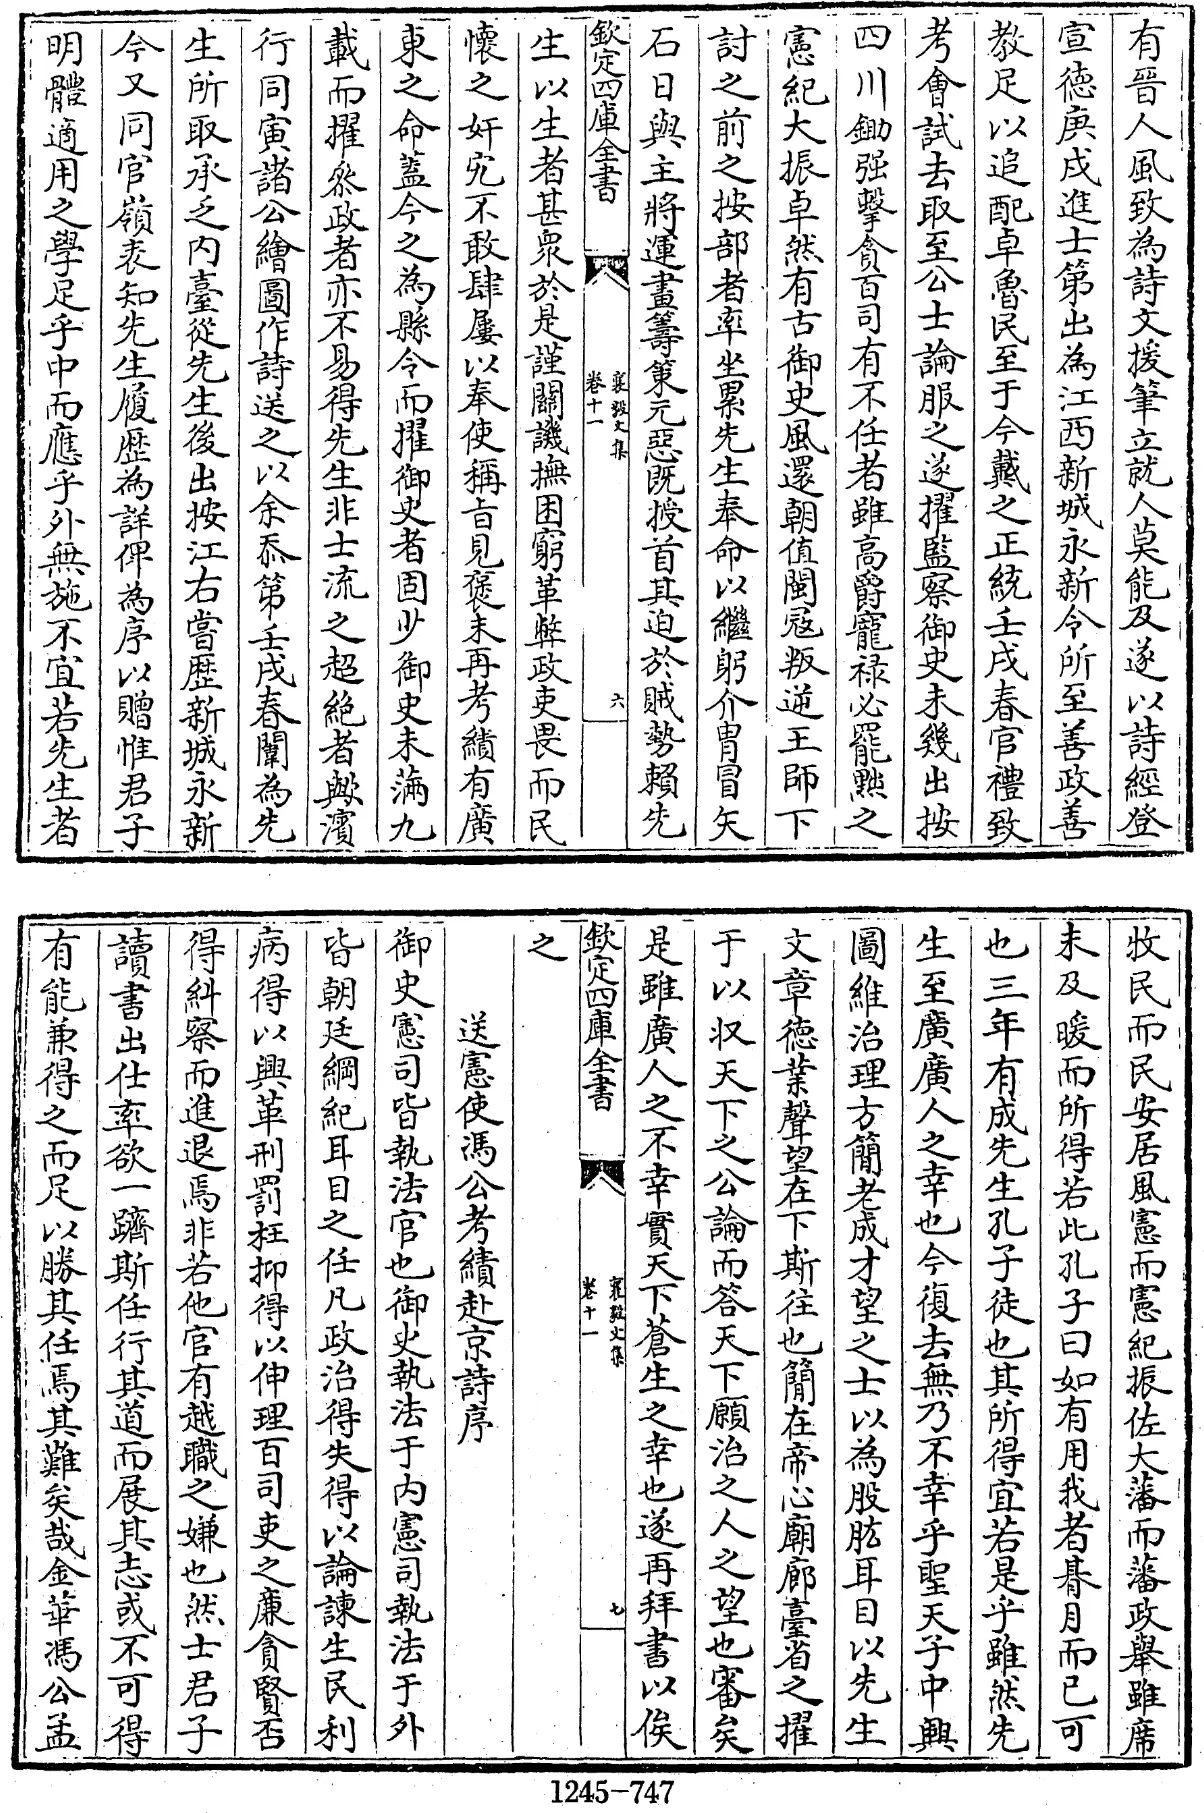 有晉人風致為詩文援筆立就人莫能及遂以詩經登
宣德庚戌進士第出為江西新城永新令所至善政善
教足以追配卓魯民至于今戴之正統壬戌春官禮致
考會試去取至公士論服之遂擢監察御史未幾出按
四川鋤强擊貪百司有不任者雖高爵寵祿必罷黜之
憲紀大振卓然有古御史風還朝值閩冦叛逆王師下
討之前之按部者率坐累先生奉命以繼躬介冑冒矢
石日與主將運畫籌策元惡既授首其迫於賊勢賴先
欽定四庫全書
襄毅文集
卷十一
六
生以生者甚衆於是謹關譏撫困窮革弊政吏畏而民
懷之奸宄不敢肆屢以奉使稱旨見褒末再考績有廣
東之命蓋今之為縣令而擢御史者固少御史未滿九
載而擢叅政者亦不易得先生非士流之超絶者歟濱
行同寅諸公繪圖作詩送之以余忝第壬戌春闈為先
生所取承乏内臺從先生後出按江右嘗歴新城永新
今又同官嶺表知先生履歴為詳俾為序以贈惟君子
明體適用之學足乎中而應乎外無施不宜若先生者
牧民而民安居風憲而憲紀振佐大藩而藩政舉雖席
未及暖而所得若此孔子曰如有用我者朞月而已可
也三年有成先生孔子徒也其所得宜若是乎雖然先
生至廣廣人之幸也今復去無乃不幸乎聖天子中興
圖維治理方簡老成才望之士以為股肱耳目以先生
文章德業聲望在下斯往也簡在帝心廟廊臺省之擢
于以収天下之公論而答天下願治之人之望也審矣
是雖廣人之不幸實天下蒼生之幸也遂再拜書以俟
欽定四庫全書
襄毅文集
卷十一
七
之
送憲使馮公考績赴京詩序
御史憲司皆執法官也御史執法于内憲司執法于外
皆朝廷綱紀耳目之任凡政治得失得以論諫生民利
病得以興革刑罰枉抑得以伸理百司吏之廉貪賢否
得糾察而進退焉非若他官有越職之嫌也然士君子
讀書出仕率欲一躋斯任行其道而展其志或不可得
有能兼得之而足以勝其任焉其難矣哉金華馮公孟
1245-747